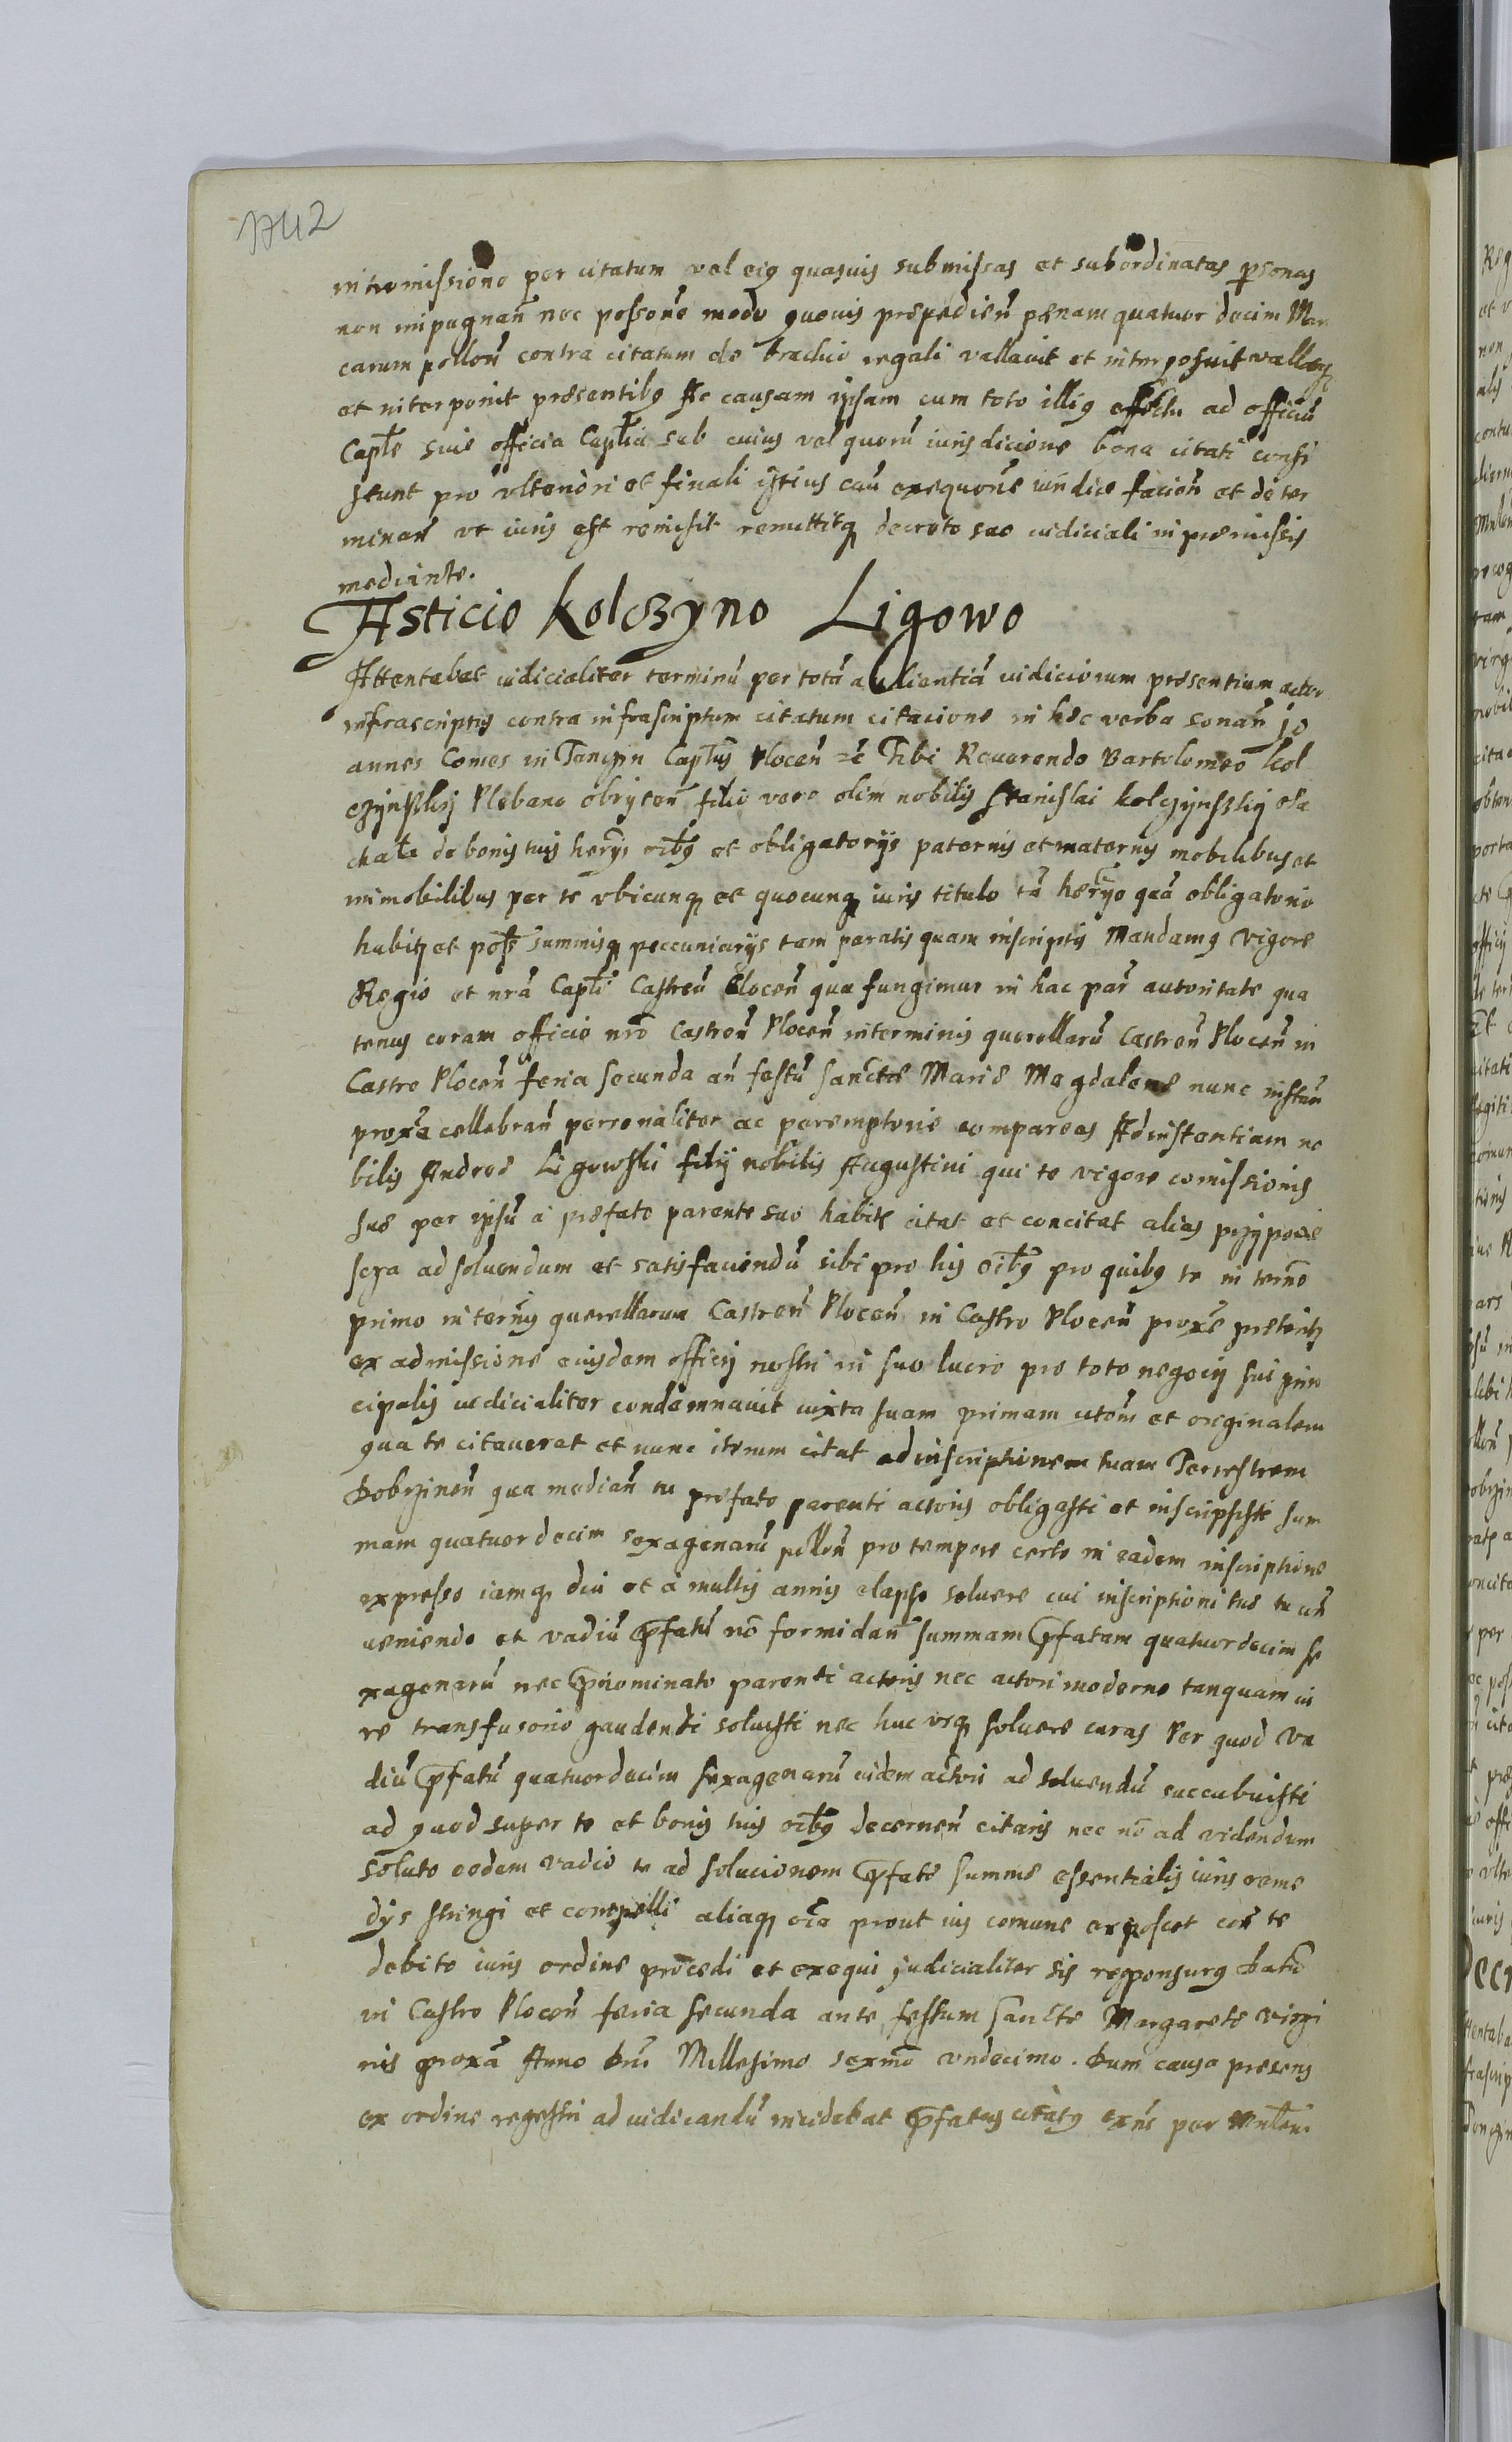 1742
intromissione per citatum vel eig quasuis submissas et subordinatas psonas
non impugnan̄ nec possone̅ modo quouis prepedien̄ penam quatuor decim Mar
carum pollon̄ contra citatum de brachio regali vallauit et interposuit vallatq
et interponit presentibg Ac causam ipsam cum toto illig effectu ad officiū
Caple siue officia Captia sub cuius vel quorū iurisdicione bona citati consi
stunt pro vlteriori et finali istius cau̅ exequone̅ iuridice facien̄ et deter
minan̄ vt iuris est remisit remittitq decreto suo iudiciali in premissis
mediante.
Asticio Kolczyno Ligowo
Attentabat iudicialiter terminū per totā audientiā iudiciorum presentium actor
infrascriptus contra infrascriptum citatum citacione in hec verba sonan̄ Jo
annes Comes in Tenczin Captus Plocen̄ etc̄ Tibi Reuerendo Bartolomeo Kol
czynskij Plebano obryten̄ filio vero olim nobilis Stanislai kolczynszkij
de bonis tuis heryis oibg et obligatorijs paternis et maternis mobilibus et
immobilibus per te vbicunq et quocunq iuris titulo tā heryo quā obligatorio
habitis et poss summisq peccuniarijs tam paratis quam inscriptis Mandamg vigore
Regio et nrā Capti Castren̄ Plocen̄ qua fungimur in hac par̄ autoritate qua
tenus coram officio nro̅ Castren̄ Plocen̄ in terminis querellarū Castren̄ Plocen̄ in
Castro Plocen̄ feria secunda an̄ festū sancte Marie Magdalene nunc instan̄
proxe̅ cellebran̄ personaliter ac peremptorie compareas Ad instantiam no
bilis Andree Ligowski filij nobilis Augustini qui te vigore comissionis
sue per ipsū a prefato parente suo habite citat et concitat alias przypozew
ad soluendum et satisfaciendū sibi pro his oibg pro quibg te in termo̅
primo in termis querellarum Castren̄ Plocen̄ in Castro Plocen̄ proxe̅ preteritis
ex admissione eiusdem officij nostri in suo lucro pro toto negocij sui prin
cipalis iudicialiter condemnauit iuxta suam primam citom̅ et originalem
qua te citauerat et nunc iterum citat ad inscriptionem tuam Terrestrem
Dobrzinen̄ qua median̄ tu prefato parenti actoris obligasti et inscripsisti sum
mam quatuordecim sexagenarū pollon̄ pro tempore certo in eadem inscriptione
expresso iamq diu et a multis annis elapso soluere cui inscriptioni tue tu con̄
ueniendo et vadiū pfatū no̅ formidan̄ summam pfatam quatuordecim se
xagenarū nec pnominato parenti actoris nec actori moderno tanquam iu
re transfusorio gaudenti soluisti nec huc vsq soluere curas Per quod va
diū pfatū quatuordecim sexagenarū eidem actori ad soluendū succubuisti
ad quod super te et bonis tuis oibg decernen̄ citaris nec no̅ ad videndum
soluto eodem vadio te ad solucionem pfate summe essentialis iuris reme
dijs stringi et compelli aliaq oia prout ius comune exposcet con̄ te
debito iuris ordine procedi et exequi judicialiter sis responsurg Datū
in Castro Plocen̄ feria secunda ante festum sancte Margarete virgi
nis proxā Anno Dni̅ Millesimo sexmo̅ vndecimo. Dum causa presens
ex ordine regestri ad iudicandū incidebat pfatus citatg exn̅s per Mntem